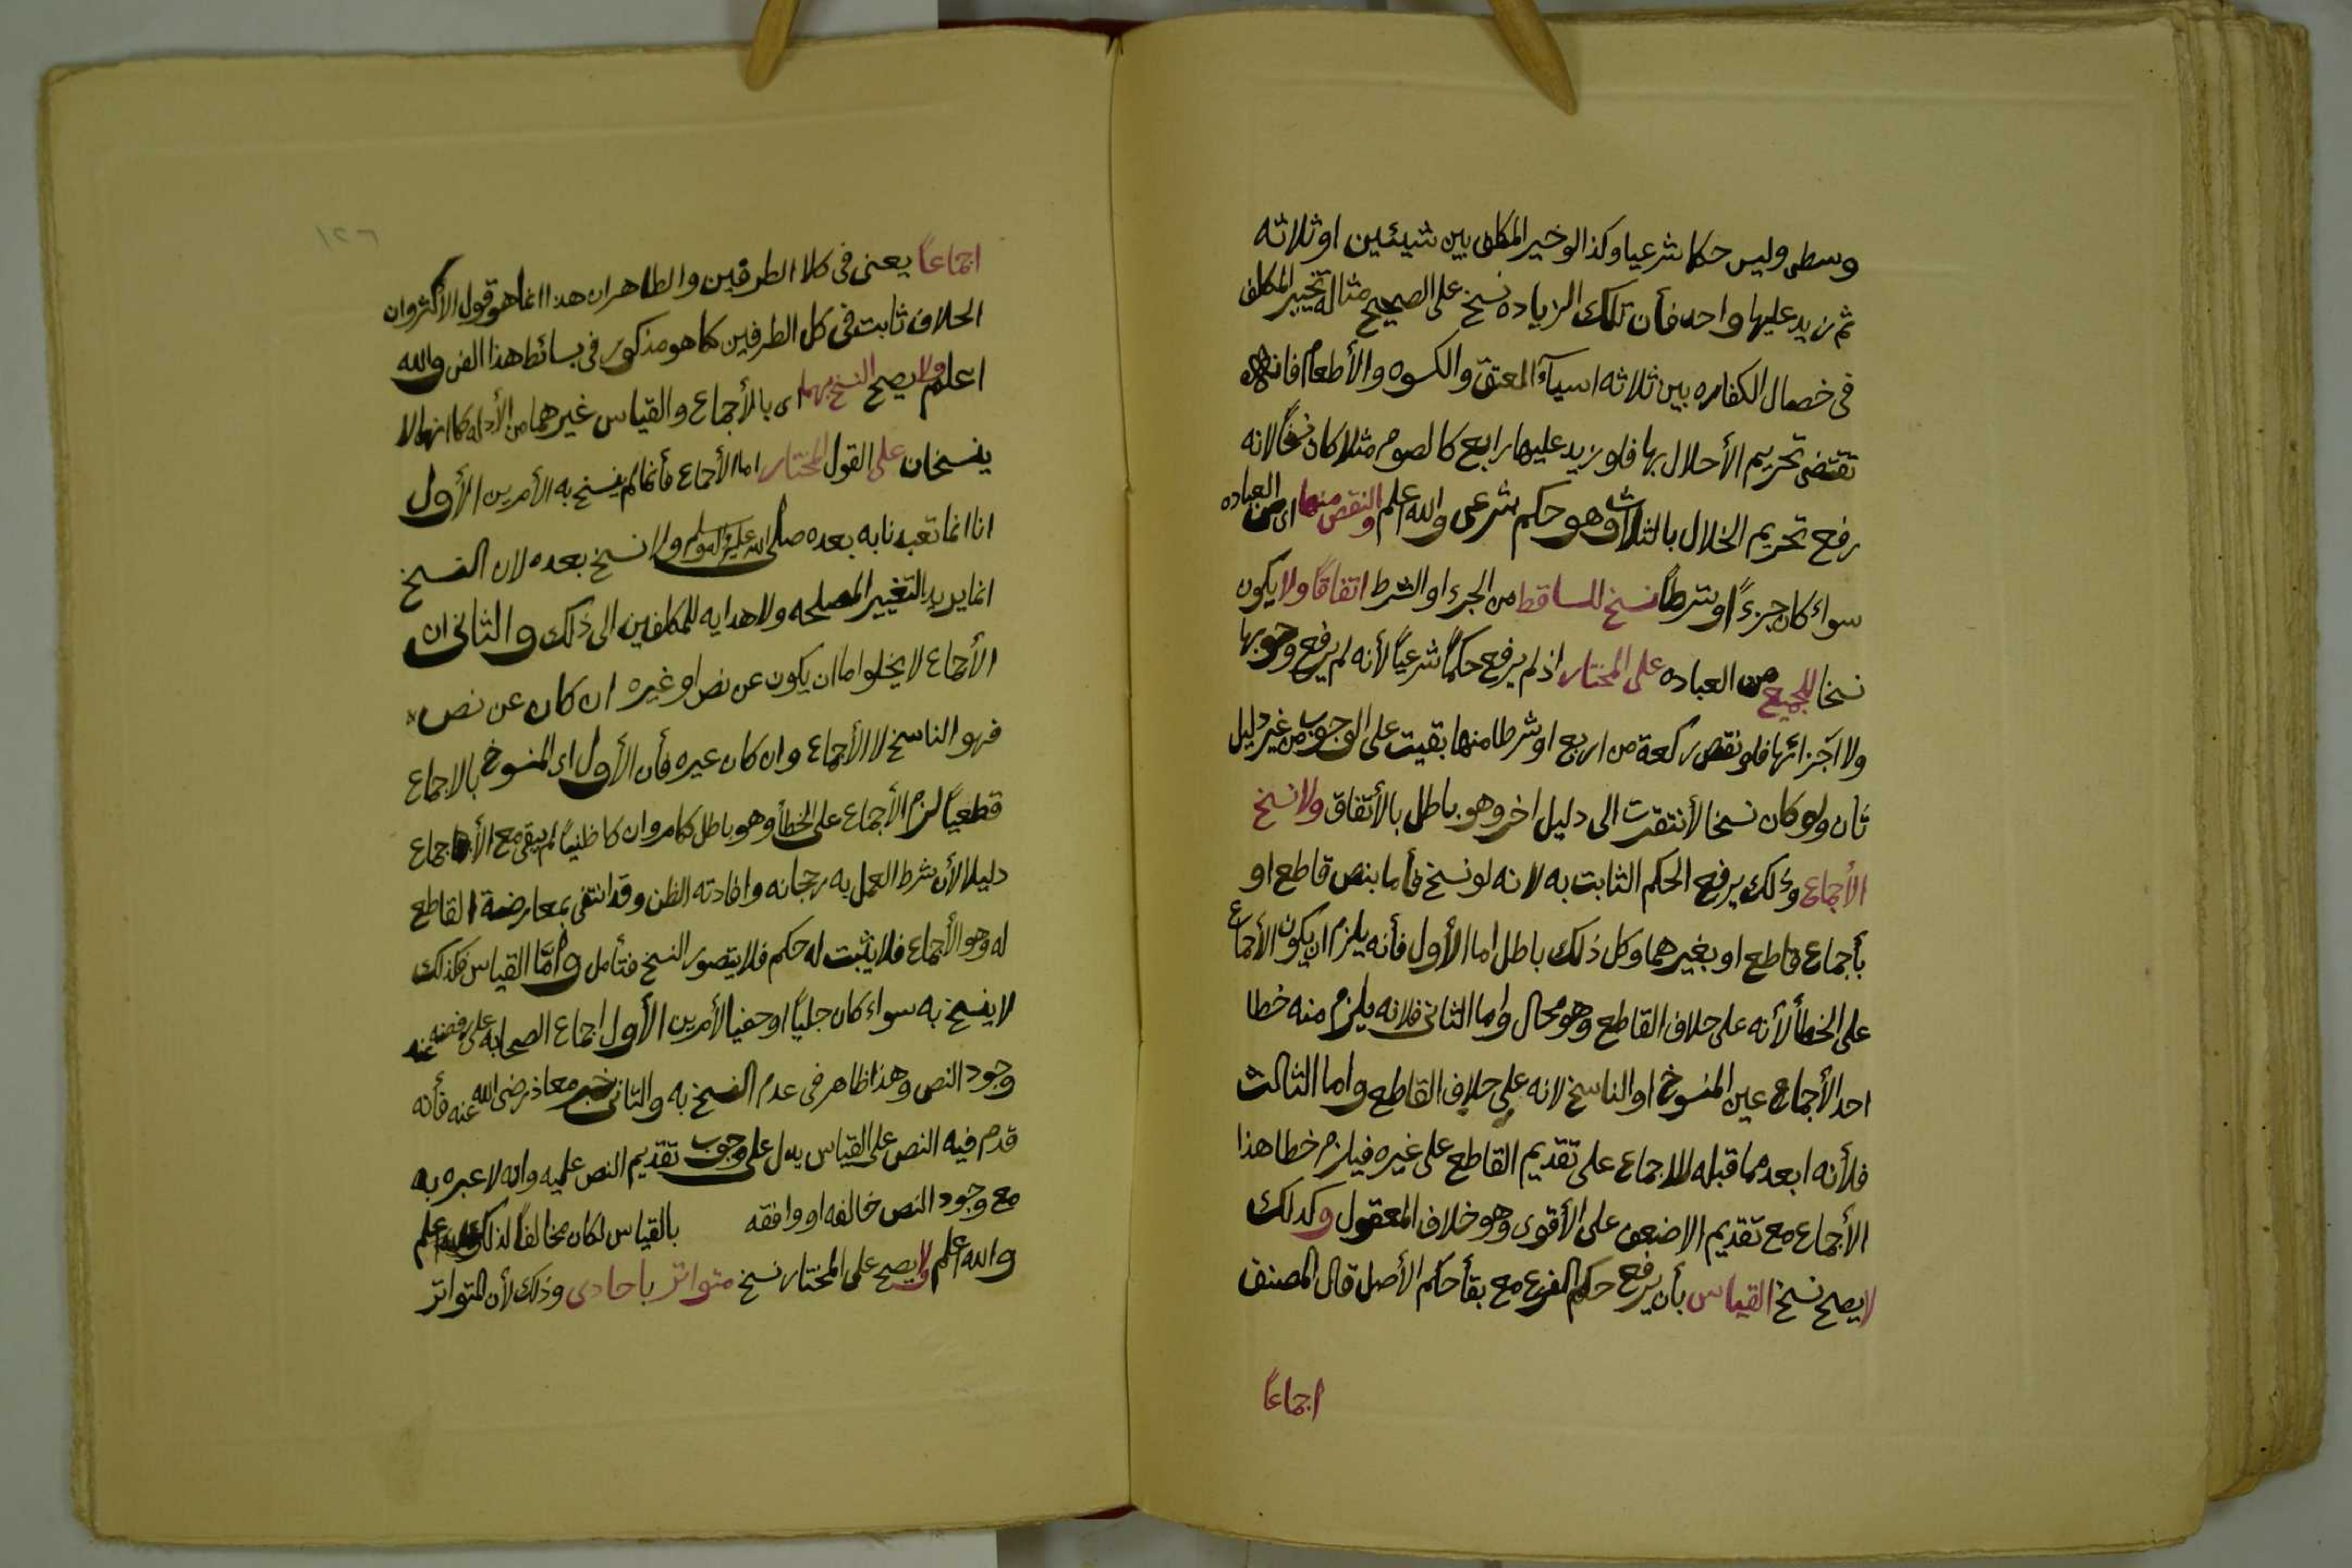 وسطى وليس حكما شرعيا وكذا لو خير المكلف بين شيئين او ثلاثه
ثم زيد عليها واحد فأن تلك الزياده نسخ على الصحيح مثاله تخيير المكلف
فى خصال الكفاره بين ثلاثه اسيآء العتق والكسوه والأطعام فانها
تقتضى تحريم الأخلال بها فلو زيد عليها رابع كالصوم مثلا كان نسخا لانه
رفع تحريم الخلال بالثلاث وهو حكم شرعى والله اعلم والنقص منها اى من العباده
سواء كان جزءً او شرطاً نسخ للساقط من الجزء او الشرط اتفاقًا ولا يكون
نسخا للجميع من العباده على المختار اذ لم يرفع حكمًا شرعيًا لأنه لم يرفع وجوبها
ولا اجزائها فلو نقص ركعة من اربع او شرطا منها بقيت على الوجوب من غير دليل
ثان ولو كان نسخا لأفتقرت الى دليل اخر وهو باطل بالأتفاق ولا نسخ
الأجماع وذلك يرفع الحكم الثابت به لانه لو نسخ فأما بنص قاطع او
بأجماع قاطع او بغيرهما وكل ذلك باطل اما الأول فأنه يلزم ان يكون الأجماع
على الخطأ لأنه على خلاف القاطع وهو محال واما الثانى فلانه يلزم منه خطا
احد الأجماع عين المنسوخ او الناسخ لانه على خلاف القاطع واما الثالث
فلأنه ابعد مما قبله للاجماع على تقديم القاطع على غيره فيلزم خطا هذا
الأجماع مع تقديم الاضعف على الأقوى وهو خلاف المعقول وكذلك
لا يصح نسخ القياس بأن يرفع حكم الفرع مع بقأ حكم الأصل قال المصنف
اجماعًا
١٢٦
اجماعًا يعنى فى كلا الطرفين والظاهر ان هذا انما هو قول الأكثر وان
الخلاف ثابت فى كل الطرفين كما هو مذكور فى بسائط هذا الفن والله
اعلم ولا يصح النسخ بهما اى بالأجماع والقياس غيرهما من الأدله كما انهما لا
ينسخان على القول المختار اما الأجماع فأنما لم ينسخ به الأمرين الأول
انا انما تعبدنا به بعده صلى الله عليه واله وسلم ولا نسخ بعده لان النسخ
انما يريد التغيير المصلحه ولا هدايه للمكلفين الى ذلك والثانى ان
الأجماع لا يخلوا اما ان يكون عن نص او غيره ان كان عن نص
فهو الناسخ لا الأجماع وان كان غيره فأن الأول اى المنسوخ بالاجماع
قطعيًا لزم الأجماع على الخطأ وهو باطل كما مر وان كا ظنيًا لم يبقى مع الأجماع
دليلا لأن شرط العمل به رجحانه وافادته الظن وقد انتفى بمعارضة القاطع
له وهو الأجماع فلا يثبت له حكم فلا يتصور النسخ فتأمل وامّا القياس فكذلك
لا ينسخ به سواء كان جليًا او خفيا لأمرين الأول اجماع الصحابه على رفضه عند
وجود النص وهذا ظاهر فى عدم النسخ به والثانى خبر معاذ رضى الله عنه فأنه
قدم فيه النص على القياس يدل على وجوب تقديم النص عليه وانه لا عبره به
مع وجود النص خالفه او وافقه بالقياس لكان مخالفًا لذلك والله اعلم
والله اعلم ولا يصح على المختار نسخ متواتر باحادى وذلك لأن المتواتر